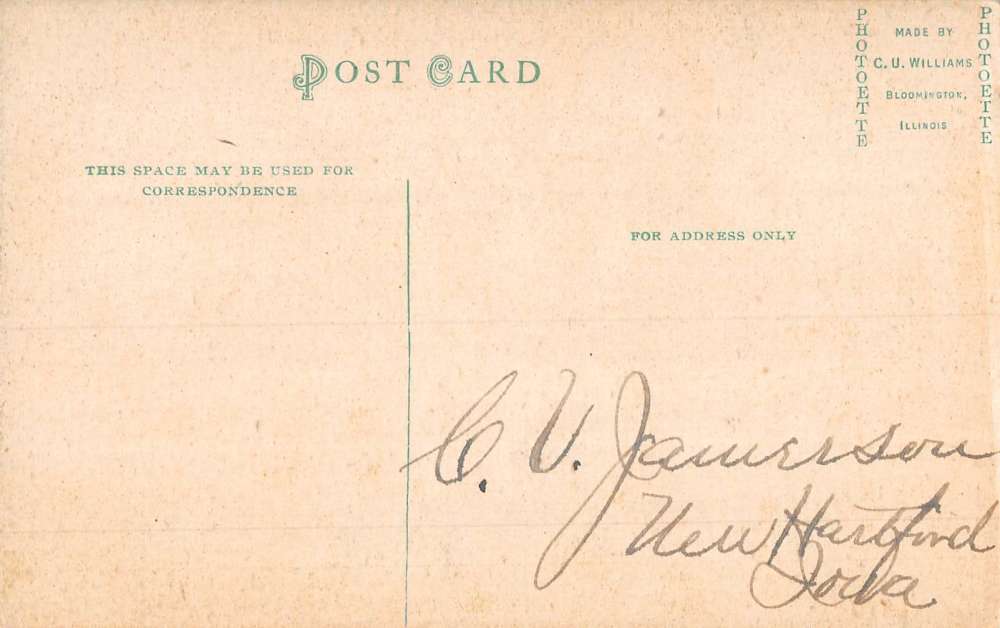 POST CARD
PHOTOETTE
MADE BY
C. U. WILLIAMS
BLOOMINGTON,
ILLINOIS
PHOTOETTE
THIS SPACE MAY BE USED FOR
CORRESPONDENCE
FOR ADDRESS ONLY
C. V. Jamerson
New Hartford
Iowa